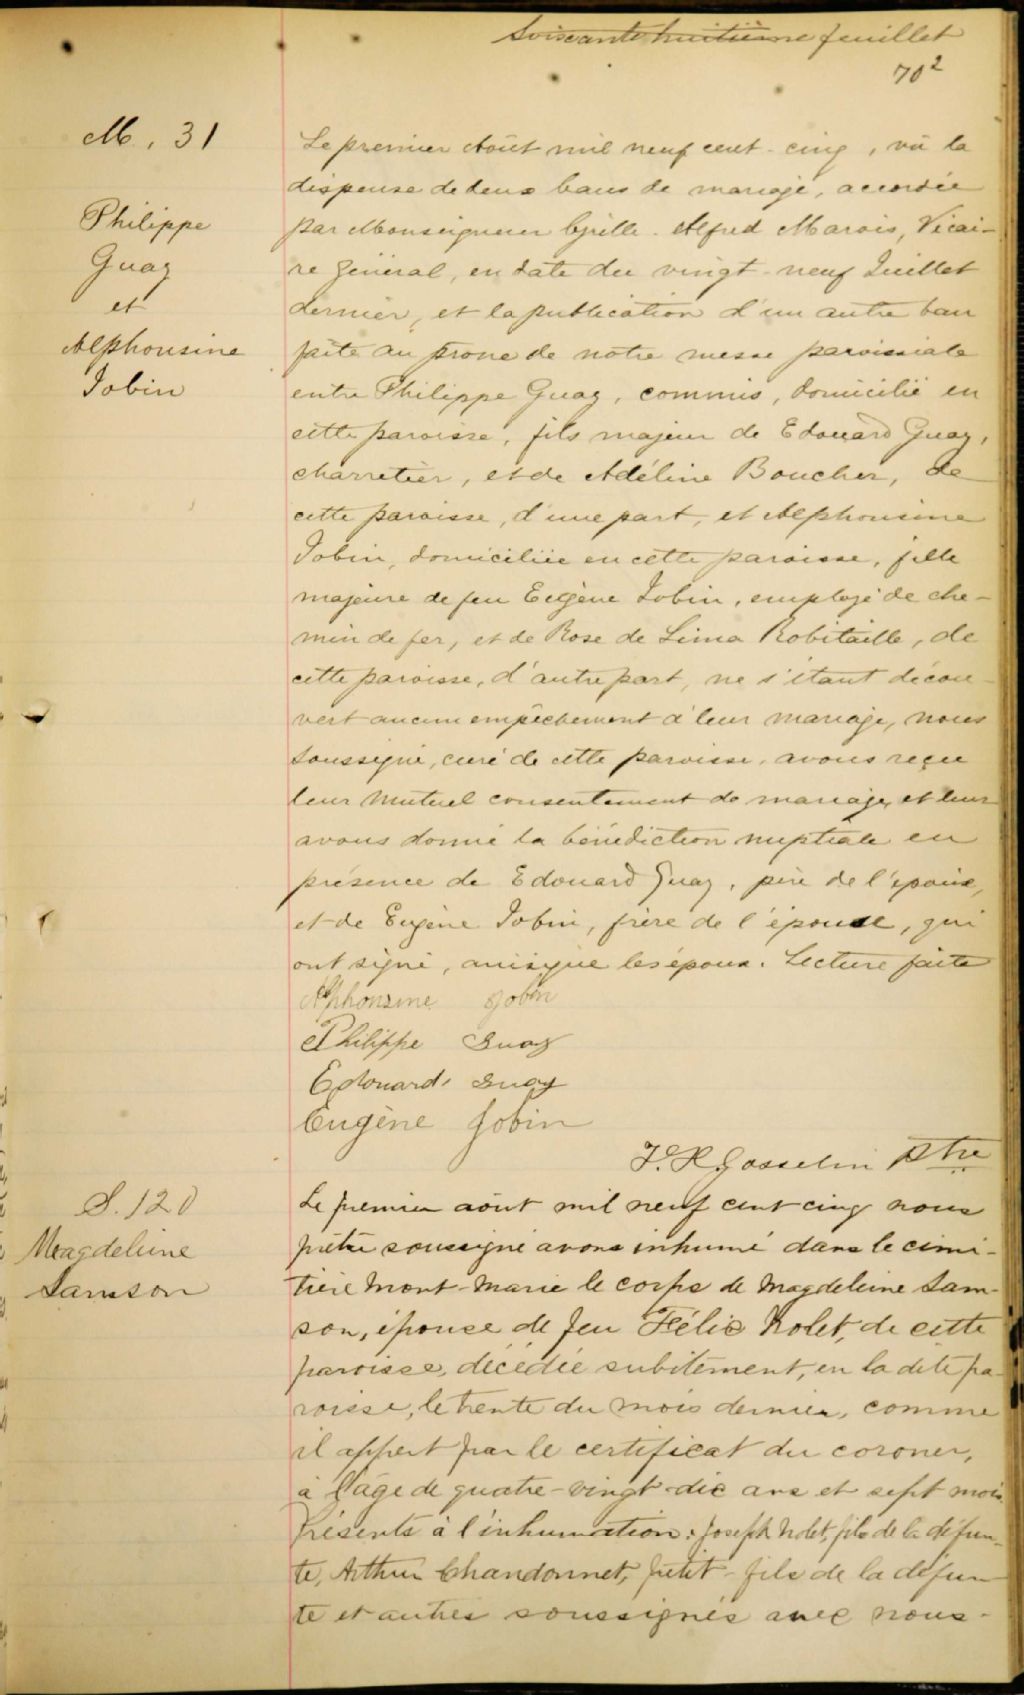 Soixante huitième feuillet
70²
M. 31
Philippe
Guay
et
Alphonsine
Jobin
Le premier Août mil neuf cent-cinq, vû la
dispense de deux bans de mariage, accordée
par Monseigneur Cyrille-Alfred Marois, Vicai-
re Général, en date du vingt-neuf Juillet
dernier, et la publication d'un autre ban
faite au prône de notre messe paroissiale
entre Philippe Guay, commis, domicilié en
cette paroisse, fils majeur de Edouard Guay,
charretier, et de Adéline Boucher, de
cette paroisse, d'une part, et Alphonsine
Jobin, domiciliée en cette paroisse, fille
majeure de feu Eugène Jobin, employé de che-
min de fer, et de Rose de Lima Robitaille, de
cette paroisse, d'autre part, ne s'étant décou-
vert aucun empêchement à leur mariage, nous
soussigné, curé de cette paroisse, avons reçu
leur mutuel consentement de mariage et leur
avons donné la bénédiction nuptiale en
présence de Edouard Guay, père de l'époux,
et de Eugène Jobin, frère de l'épouse, qui
ont signé, ainsi que les époux. Lecture faite
Alphonsine Jobin
Philippe Guay
Edouard Guay
Eugène Jobin
F. X. Gosselin Ptre
S. 120
Magdeleine
Samson
Le premier août mil neuf cent cinq nous
prêtre soussigné avons inhumé dans le cime-
tière Mont-Marie le corps de Magdeleine Sam-
son, épouse de feu Félix Nolet, de cette
paroisse, décédée subitement, en la dite pa-
roisse, le trente du mois dernier, comme
il appert par le certificat du coroner,
à l'âge de quatre-vingt-dix ans et sept mois.
Présents à l'inhumation: Joseph Nolet, fils de la défun-
te, Arthur Chandonnet, petit-fils de la défun-
te et autres soussignés avec nous-